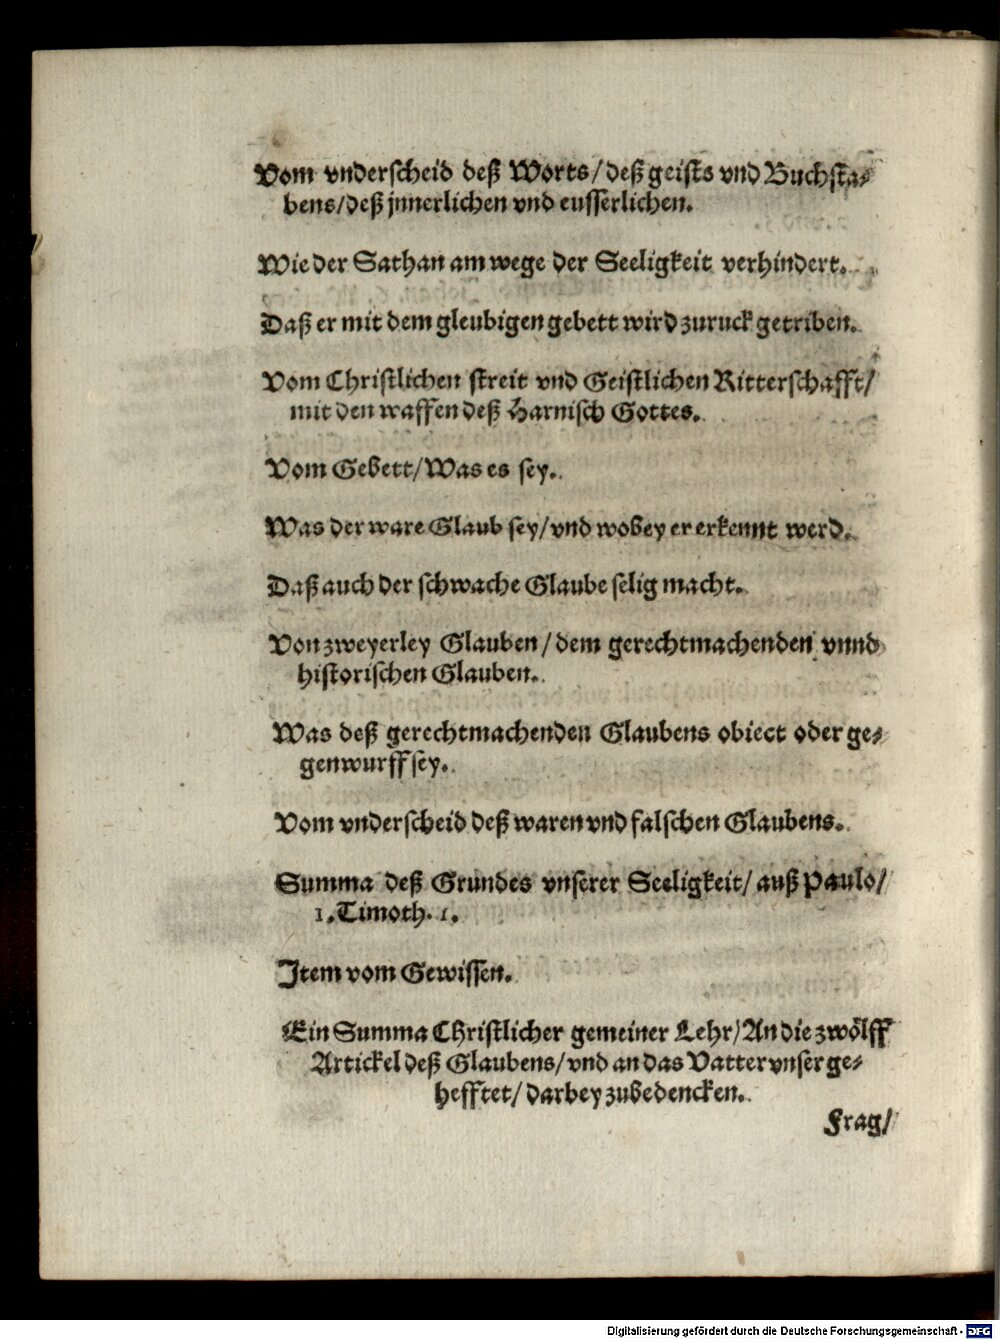 Vom vnderscheid deß Worts/deß geists vnd Buchsta⸗
bens/deß jnnerlichen vnd eusserlichen.
Wie der Sathan am wege der Seeligkeit verhindert.
Daß er mit dem gleubigen gebett wird zuruck getriben.
Vom Christlichen streit vnd Geistlichen Ritterschafft/
mit den waffen deß Harnisch Gottes.
Vom Gebett/Was es sey.
Was der ware Glaub sey/vnd wobey er erkennt werd.
Daß auch der schwache Glaube selig macht.
Von zweyerley Glauben/dem gerechtmachenden vnnd
historischen Glauben.
Was deß gerechtmachenden Glaubens obiect oder ge⸗
genwurff sey.
Vom vnderscheid deß waren vnd falschen Glaubens.
Summa deß Grundes vnserer Seeligkeit/auß Paulo/
1. Timoth. 1.
Item vom Gewissen.
Ein Summa Christlicher gemeiner Lehr/An die zwölff
Artickel deß Glaubens/vnd an das Vatter vnser ge⸗
hefftet/darbey zubedencken.
Frag/
Digitalisierung gefördert durch die Deutsche Forschungsgemeinschaft - DFG